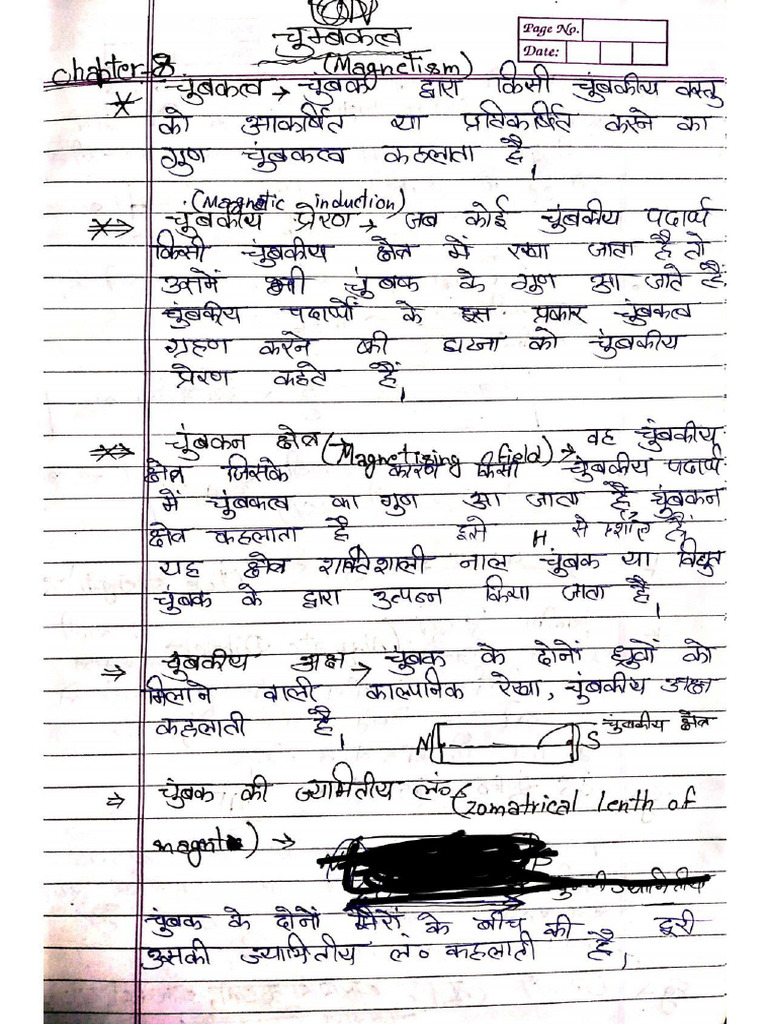 चुम्बकत्व
Page No.
Date:
Chapter-8
(Magnetism)
चुंबकत्व → चुंबक द्वारा किसी चुंबकीय वस्तु
को आकर्षित या प्रतिकर्षित करने का
गुण चुंबकत्व कहलाता है।
(Magnetic induction)
चुंबकीय प्रेरण → जब कोई चुंबकीय पदार्थ
किसी चुंबकीय क्षेत्र में रखा जाता है तो
उसमें भी चुंबक के गुण आ जाते हैं
चुंबकीय पदार्थों के इस प्रकार चुंबकत्व
ग्रहण करने की घटना को चुंबकीय
प्रेरण कहते हैं।
चुंबकन क्षेत्र (Magnetising field) → वह चुंबकीय
क्षेत्र जिसके कारण किसी चुंबकीय पदार्थ
में चुंबकत्व का गुण आ जाता है चुंबकन
क्षेत्र कहलाता है इसे H से दर्शाते हैं,
यह क्षेत्र शक्तिशाली नाल चुंबक या विद्युत
चुंबक के द्वारा उत्पन्न किया जाता है।
⇒ चुंबकीय अक्ष → चुंबक के दोनों ध्रुवों को
मिलाने वाली काल्पनिक रेखा, चुंबकीय अक्ष
कहलाती है।
N S चुंबकीय क्षेत्र
⇒ चुंबक की ज्यामितीय लं० (zomatrical lenth of
magnt) →
चुंबक के दोनों सिरों के बीच की दूरी
उसकी ज्यामितीय लं० कहलाती है,